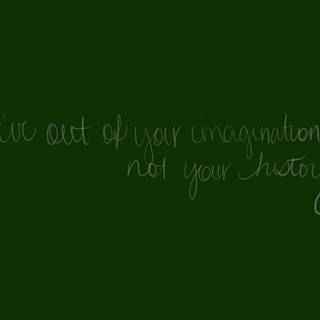 ive out of your imagination
not your histor